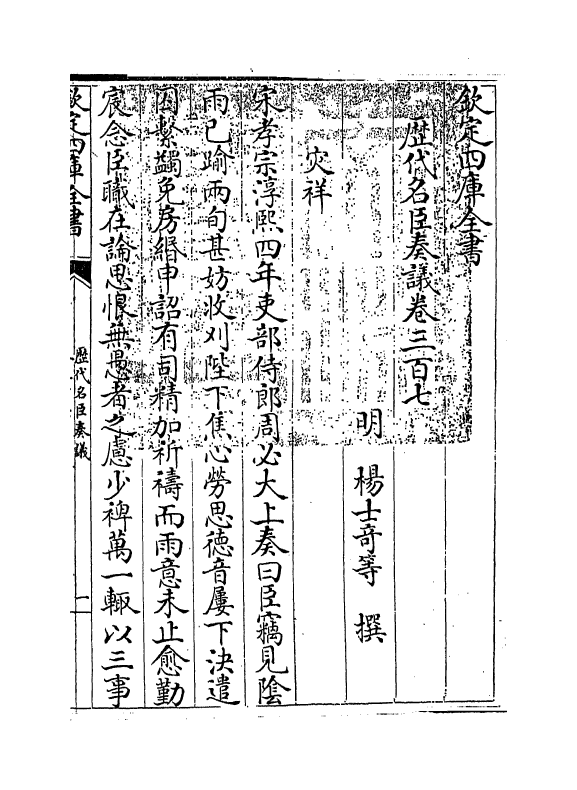 欽定四庫全書
歴代名臣奏議卷三百七
明 楊士竒等 撰
灾祥
宋孝宗淳熙四年吏部侍郎周必大上奏曰臣竊見陰
雨已踰兩旬甚妨收刈陛下焦心勞思德音屢下決遣
囚繫蠲免房緡申詔有司精加祈禱而雨意未止愈勤
宸念臣職在論思恨無愚者之慮少裨萬一輙以三事
欽定四庫全書
歷代名臣奏議
一